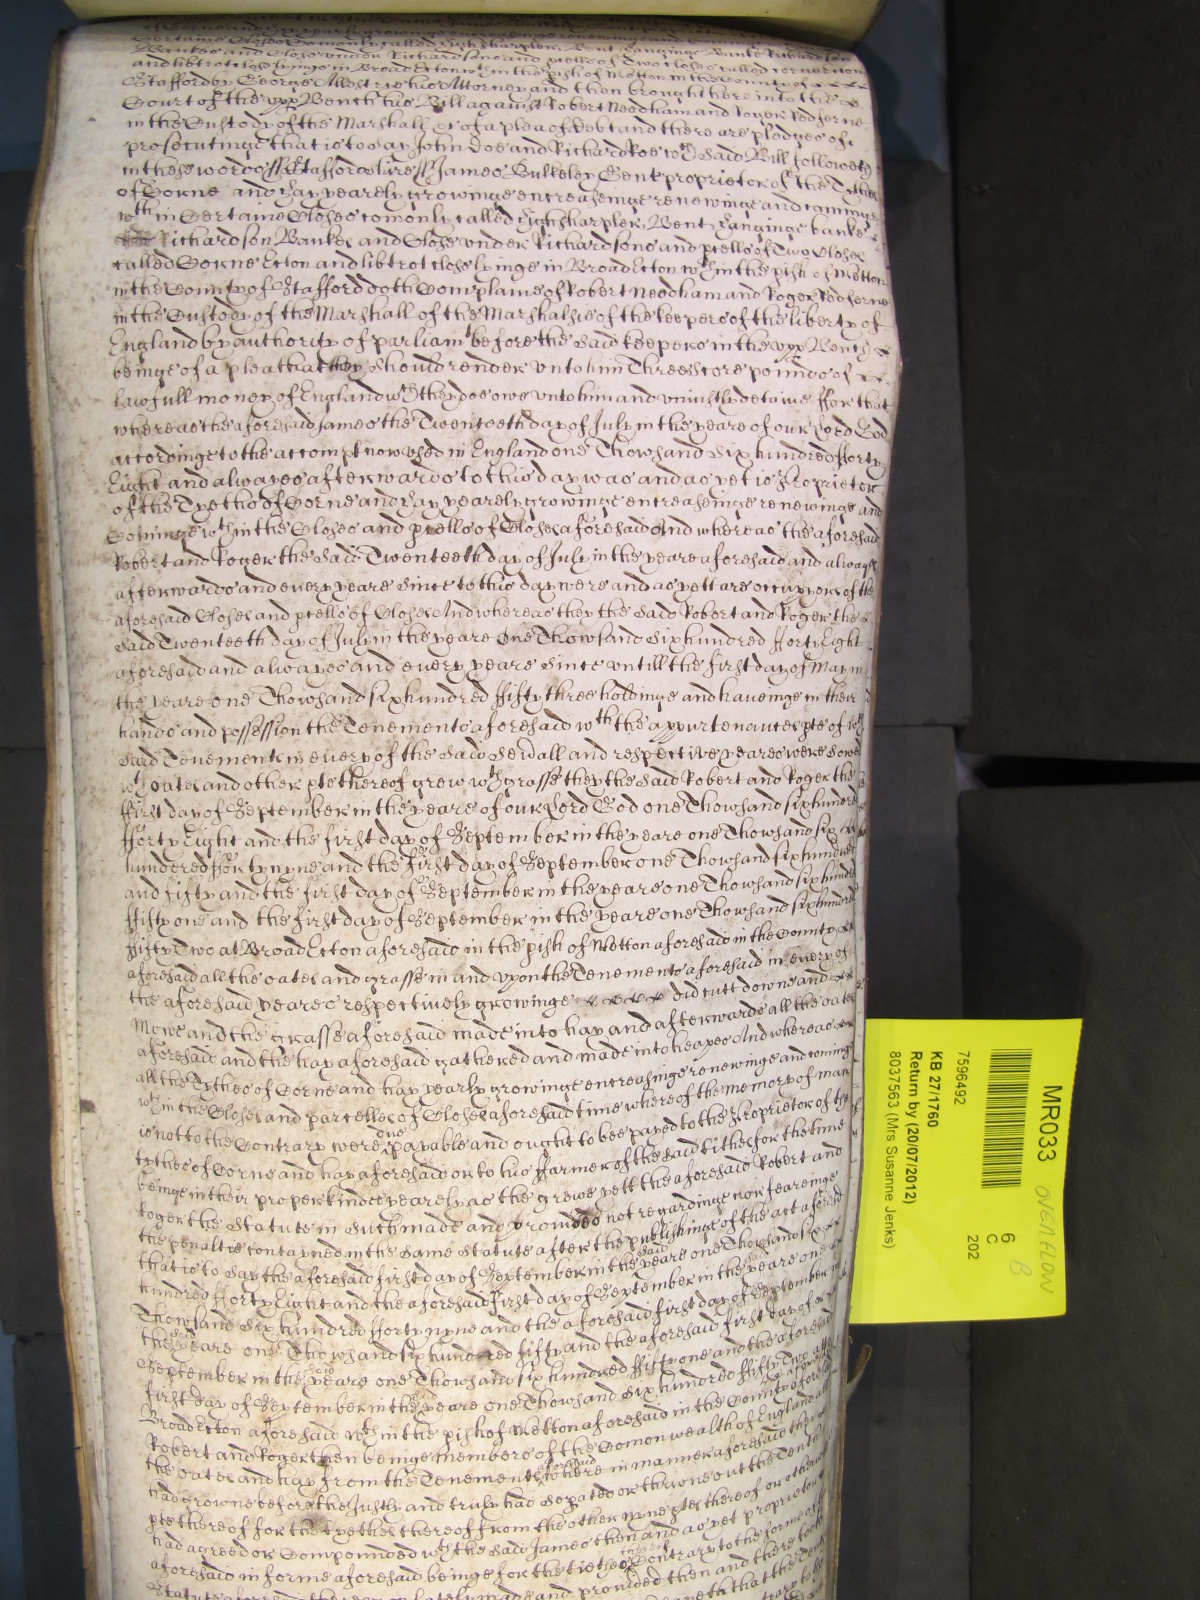 Certaine Closes Comonly called Highsharpler, Bent, Hanginge Banke Richardson
Bankes and Close under Richardsons and pcells of Two closes called Corne Ecton
and libtrot close lyinge in Broad Ecton wth in the pish of Metton in the County of
Stafford by George Allestrie his Attorney and then brought here into the
Court of the upp Bench his Bill against Robert Needham and Roger Redferne
in the Custody of the Marshall &c of a plea of Debt and there are pledges of
prosecutinge that is to say John Doe and Richard Roe wch said Bill followeth
in these words ss Staffordshire ss James Bulkeley Gent proprietor of the Tythes
of Corne and Hay yearely growinge encreaseinge renewinge and cominge
wth in Certaine Closes comonly called Highsharpler, Bent, Hanginge banke
Richardson Bankes and Close under Richardsons and pcells of Two Closes
called Corne Ecton and libtrot close lyinge in Broad Ecton wth in the pish of Metton
in the County of Stafford doth Complaine of Robert Needham and Roger Redferne
in the Custody of the Marshall of the Marshalsie of the keepers of the liberty of
England by authority of parliamt before the said keepers in the upp Bench
beinge of a plea that they should render unto him Three score pounds of
lawfull money of England wch they doe owe unto him and uniustly detaine ffor that
whereas the aforesaid James the Twenteeth day of July in the yeare of our Lord God
accordinge to the accompt now used in England one Thowsand Six hundred fforty
Eight and alwayes afterwards to this day was and as yet is Proprietor
of the Tyeths of Corne and Hay yearely growinge encreaseinge renewinge and
Cominge wth in the Closes and pcells of Closes aforesaid And whereas the aforesaid
Robert and Roger the said Twenteeth day of July in the yeare aforesaid and alwayes
afterwards and every yeare since to this day were and as yett are occupyors of the
aforesaid Closes and pcells of Closes And whereas they the said Robert and Roger the
said Twenteeth day of July in the yeare One Thowsand Six hundred fforty Eight
aforesaid and alwayes and every yeare since untill the first day of May in
the yeare one Thowsand six hundred ffifty three holdinge and haveinge in their
hands and possession the Tenements aforesaid wth the appurtenances pte of wch
said Tenements in every of the said sevrall and respective yeares were sowed
wth oates and other pte thereof grew wth grasse they the said Robert and Roger the
ffirst day of September in the yeare of our Lord God one Thowsand six hundred
fforty Eight and the first day of September in the yeare one Thowsand six
hundered fforty nyne and the first day of September one Thowsand six hundred
and fifty and the first day of September in the yeare one Thowsand six hundred
ffifty one and the first day of September in the yeare one Thowsand six hundred
ffifty Two at Broad Ecton aforesaid in the pish of Metton aforesaid in the County
aforesaid all the oates and grasse in and upon the Tenements aforesaid in every of
the aforesaid yeares respectively growinge did cutt downe and
Mowe and the grasse aforesaid made into hay and afterwards all the oates
aforesaid and the hay aforesaid gathered and made into heapes And whereas
all the Tythes of Corne and hay yearly growinge encreasinge renewinge and cominge
wth in the Closes and parcelles of Closes aforesaid time whereof the memory of man
is not to the Contrary were due payable and ought to bee payed to the Proprietor of the
tythes of Corne and hay aforesaid or to his ffarmer of the said tithes for the time
beinge in their proper kindes yearely as the grewe yett the aforesaid Robert and
Roger the Statute in such made and provided not regardinge nor feareinge
the penaltie contayned in the same Statute after the publishinge of the act aforesd
that is to say the aforesaid first day of September in the said yeare one Thowsand six
hundred fforty Eight and the aforesaid first day of September in the said yeare one
Thowsand Six hundred fforty nyne and the aforesaid first day of September in
the said yeare one Thowsand six hundred fifty and the aforesaid first day of
September in the said yeare one Thowsand six hundred ffifty one and the aforesaid
first day of September in the said yeare one Thowsand Six hundred ffifty Two att
Broad Ecton aforesaid wth in the pish of Metton aforesaid in the County aforesd
Robert and Roger then beinge members of the Comonwealth of England
the oates and hay from the Tenements aforesaid where in manner aforesaid they
had growne before the Justly and truly had Separed or throwne out the Tenth
pte thereof for the tyethes thereof from the other nyne ptes thereof or otherwise
had agreed or Compounded wth the said James then and as yet proprietour
aforesaid in forme aforesaid beinge for the tiethes thereof Contrary to the forme of
MR033
OVERFLOW
6
C
B
202
7596492
KB 27/1760
Return by (20/07/2012)
8037563 (Mrs Susanne Jenks)